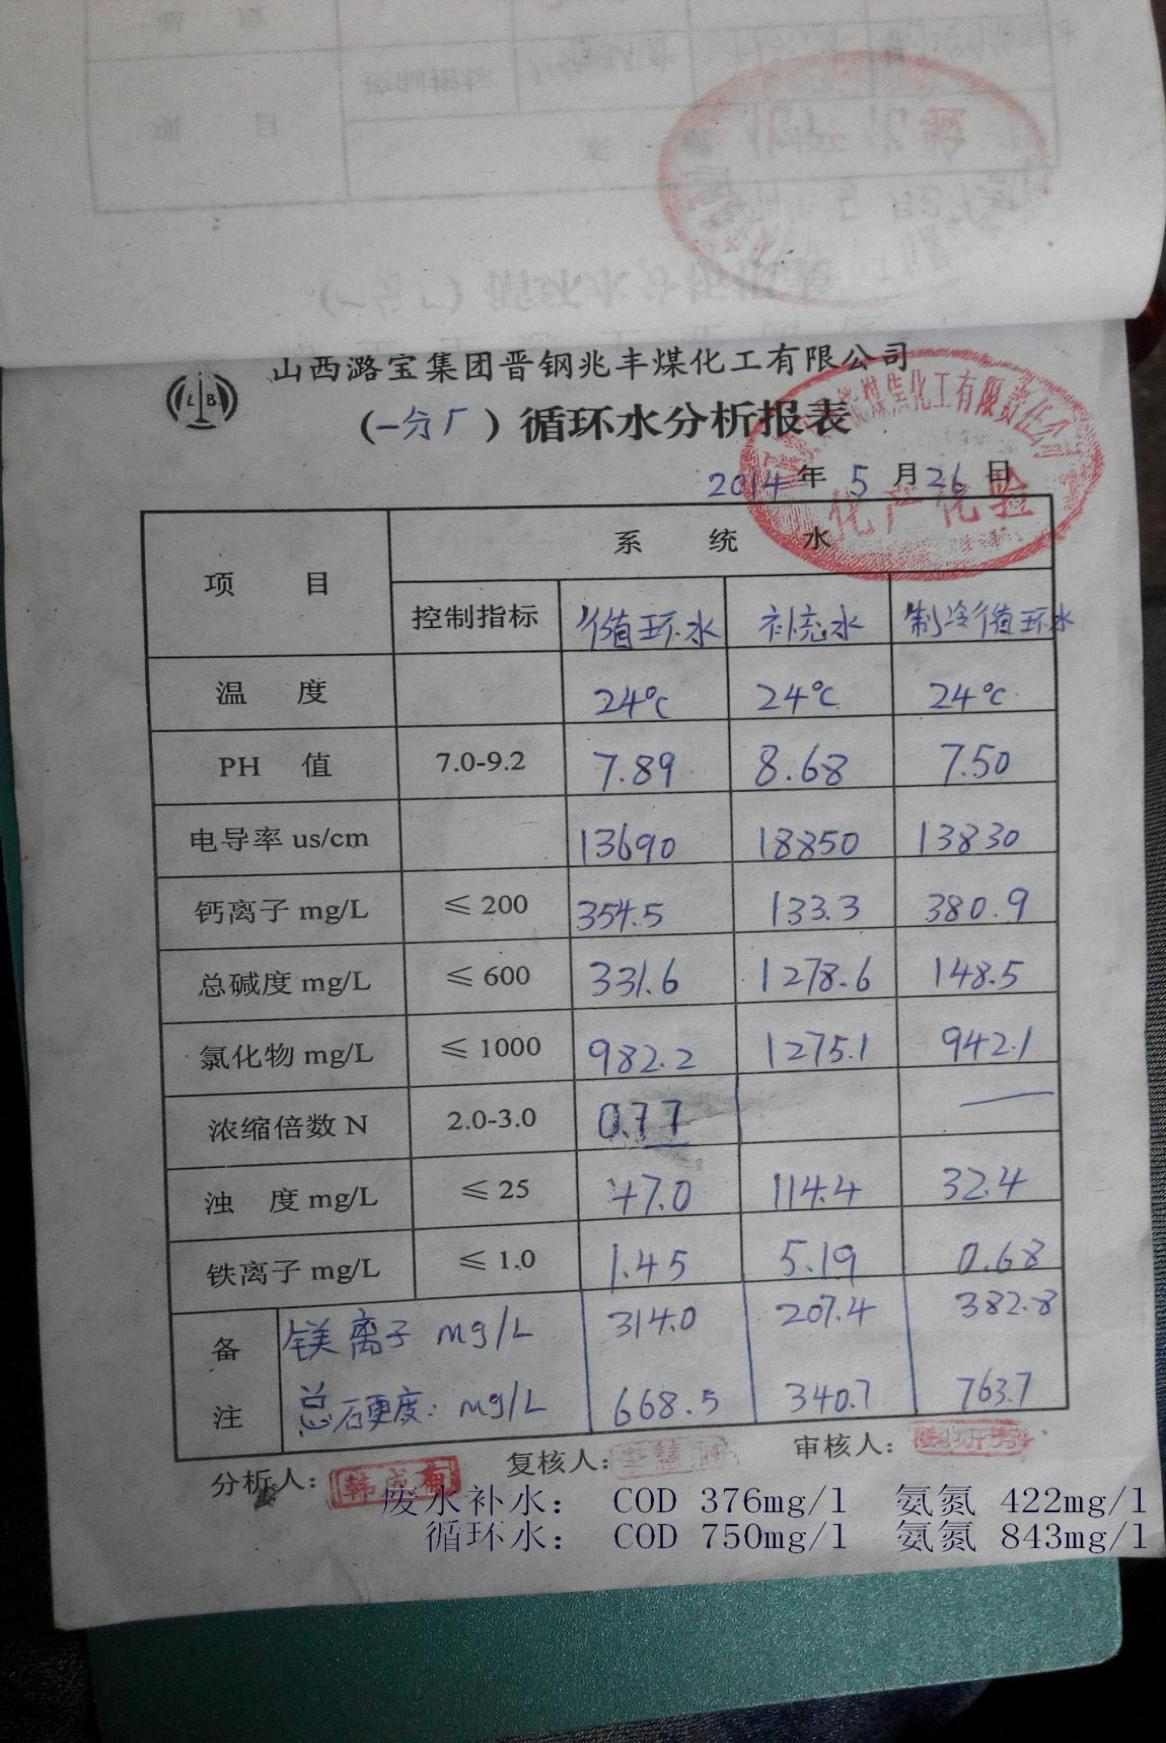 山西潞宝集团晋钢兆丰煤化工有限公司
L B
(一分厂)循环水分析报表
煤焦化工有限责任公司
化产化验
2014年5月26日
项 目 系 统 水
控制指标 循环水 补充水 制冷循环水
温 度 24℃ 24℃ 24℃
PH 值 7.0-9.2 7.89 8.68 7.50
电导率 us/cm 13690 18850 13830
钙离子 mg/L ≤200 354.5 133.3 380.9
总碱度 mg/L ≤600 331.6 1278.6 148.5
氯化物 mg/L ≤1000 982.2 1275.1 942.1
浓缩倍数 N 2.0-3.0 0.77 —
浊 度 mg/L ≤25 47.0 114.4 32.4
铁离子 mg/L ≤1.0 1.45 5.19 0.68
备注 镁离子 mg/L 314.0 207.4 382.8
总硬度: mg/L 668.5 340.7 763.7
分析人: 复核人: 审核人:
废水补水: COD 376mg/l 氨氮 422mg/l
循环水: COD 750mg/l 氨氮 843mg/l